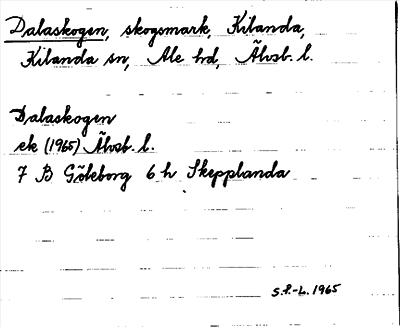 Dalaskogen, skogsmark, Kilanda,
Kilanda sn, Ale hd, Älvsb. l.
Dalaskogen
ek (1965) Älvsb. l.
7 B Göteborg 6 h Skepplanda
S.F.-L. 1965